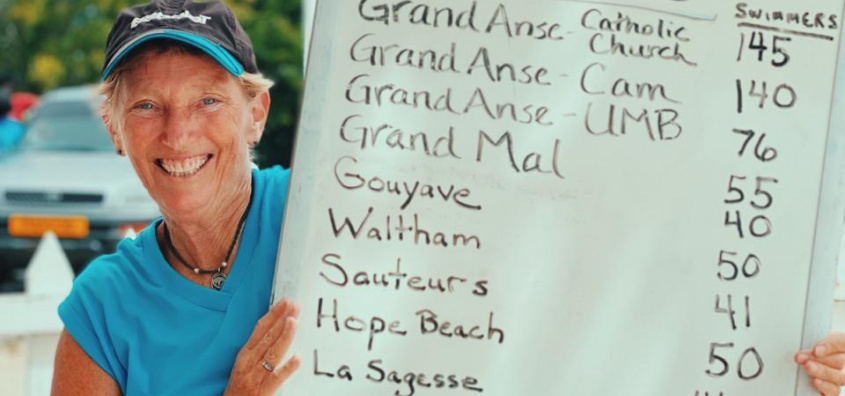 SWIMMERS
Grand Anse - Catholic Church 145
Grand Anse - Cam 140
Grand Anse - UMB 76
Grand Mal 55
Gouyave 40
Waltham 50
Sauteurs 41
Hope Beach 50
La Sagesse